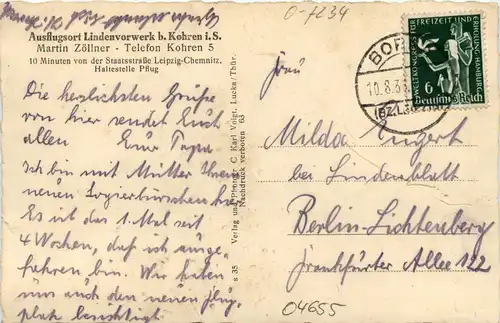 0-7234
Ausflugsort Lindenvorwerk b. Kohren i. S.
Martin Zöllner - Telefon Kohren 5
10 Minuten von der Staatsstraße Leipzig-Chemnitz,
Haltestelle Pflug
Die herzlichsten Grüße
von hier sendet Euch
allen Euer Papa
Ich bin mit Mutter
neuen
Es ist das 1. Mal seit
4 Wochen, daß ich ausge-
fahren bin. Wir haben
uns auch den neuen Flug-
platz besichtigt
Verlag und Photogr. C. Karl Voigt, Lucka/Thür.
Nachdruck verboten 63
s 35
WELTKONGRESS FÜR FREIZEIT UND ERHOLUNG HAMBURG
6
Deutsches Reich
BOR
10.8.3
(BZ. L
Frau
Milda Engert
bei Lindenblatt
Berlin-Lichtenberg
Frankfurter Allee 122
04655